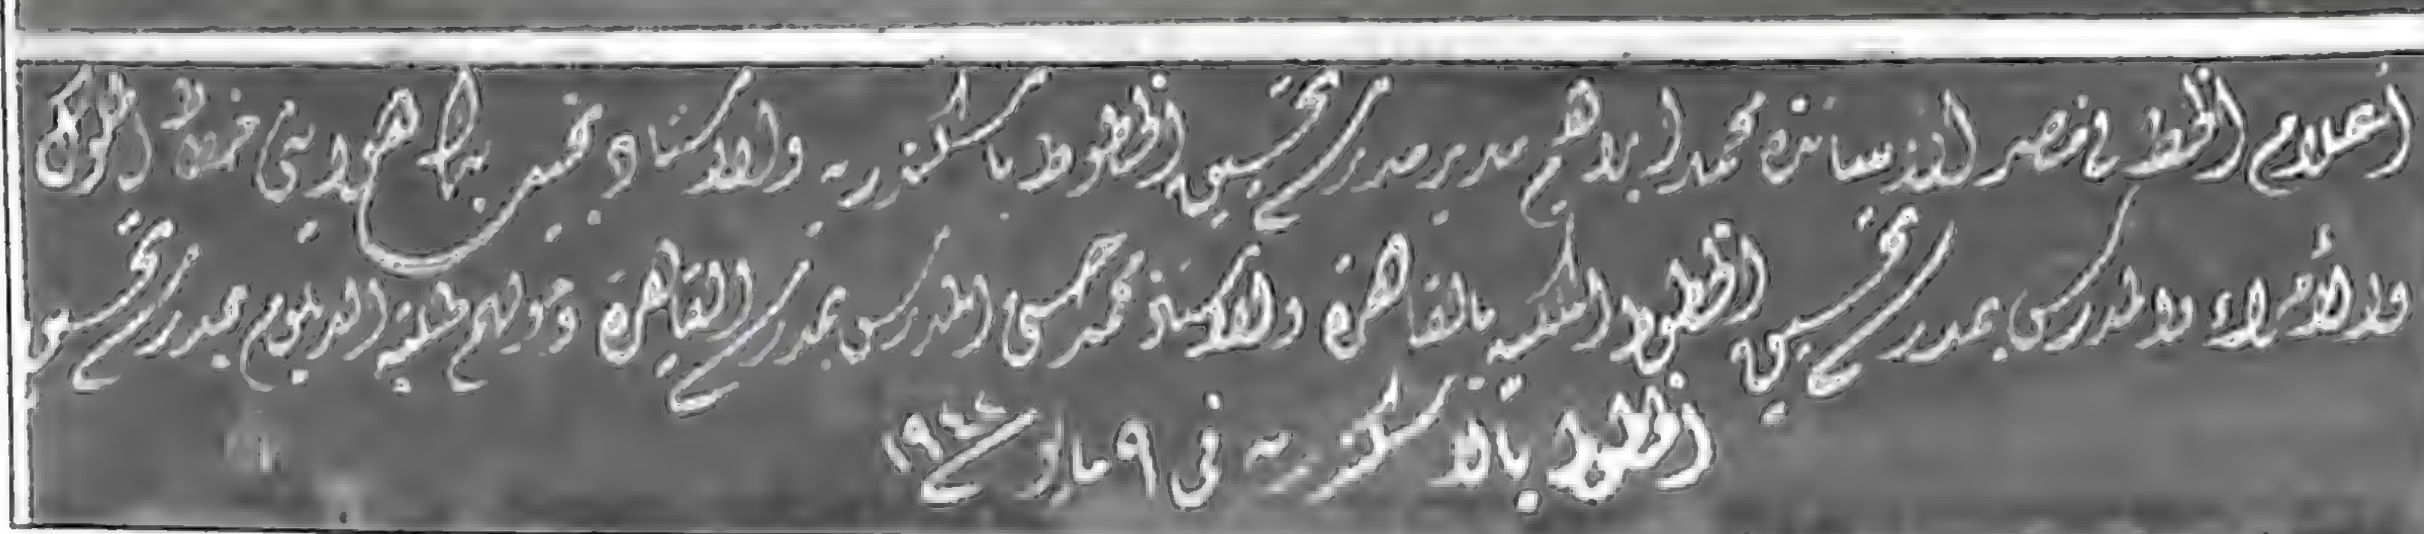 أعلام الخط في مصر الأساتذة محمد ابراهيم مدير مدرسة تحسين الخطوط باسكندرية والاستاذ نجيب بك هواويني خطاط الملوك
والأمراء والمدرس بمدرسة تحسين الخطوط الملكية بالقاهرة والاستاذ محمد حسني المدرس بمدرسة القاهرة وحولهم طلبة الدبلوم بمدرسة تحسين
الخطوط بالاسكندرية في ٩ مايو